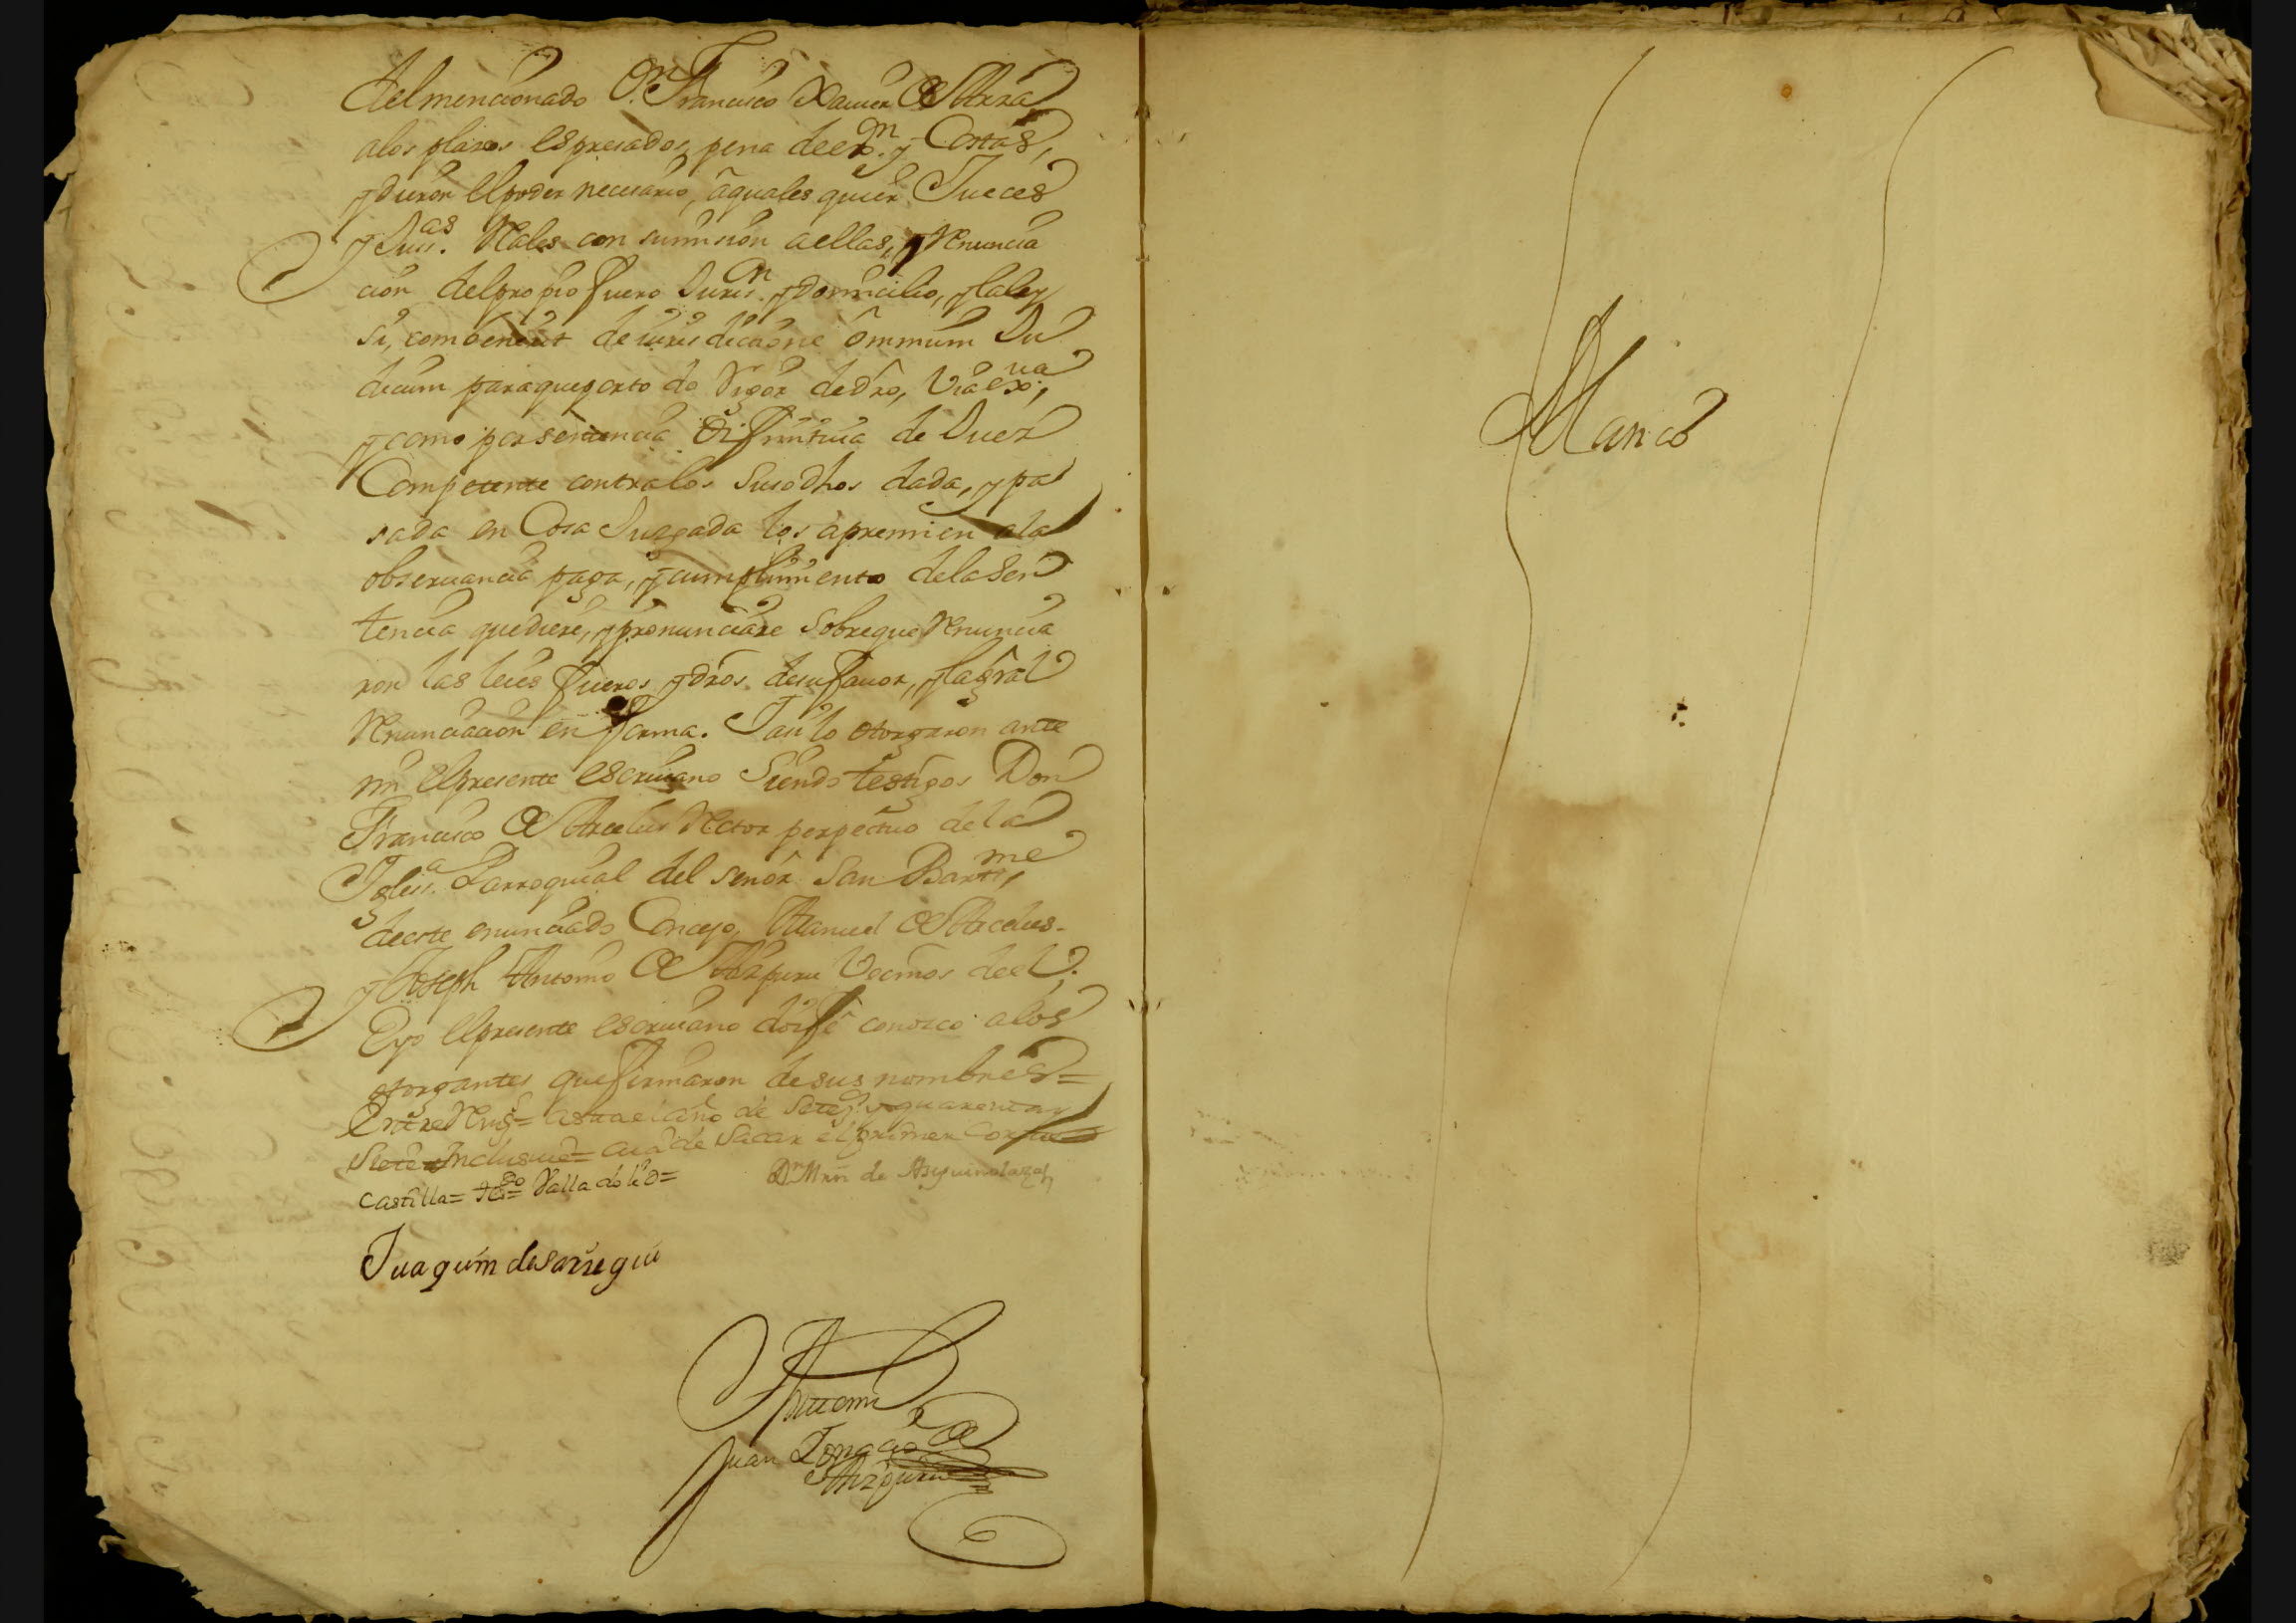 del mencionado Dn. Francisco Xauier de Arza
alos plasos espresados, pena de exon. y Costas,
y dieron el poder necesario, a quales quier Jueces
y Juss.as Reales con sumision a ellas, y Renuncia
cion del propio fuero Jurisn. y domicilio, y la ley
si, combenerit de iurisdictione omnium Ju
dicum para que por todo Rigor de dro, Via exua.,
y como por sentencia difinitiua de Juez
Competente contra los susodhos dada, y pa
sada en Cosa Juzgada los apremien a la
obseruancia paga, y cumplimiento de la Sen
tencia que diere, y pronunciare sobre que Renuncia
ron las leies fueros y dros. de su fauor, y la gral
Renunciacion en forma. I asi lo otorgaron ante
mi el presente escriuano Siendo testigos Don
Francisco de Arcelus Rector perpetuo de la
Igless.a Parroquial del señor San Bartme,
de este enunciado Concejo, Manuel de Arcelus
y Joseph Antonio de Aizpuru Vecinos de el.
E yo el presente escriuano doi fe conozco a los
otorgantes que firmaron de sus nombres=
Entre Rengs= asta el año de Setez. y quarenta y
Siete inclusiue= de Sacar el primer
Castilla= tdo= Valladolid=
Dn. Mrn de Aguinalaza
Juaquim de Sarriegui
Ante mi
Juan Ignacio de
Aizpuru
Blanco